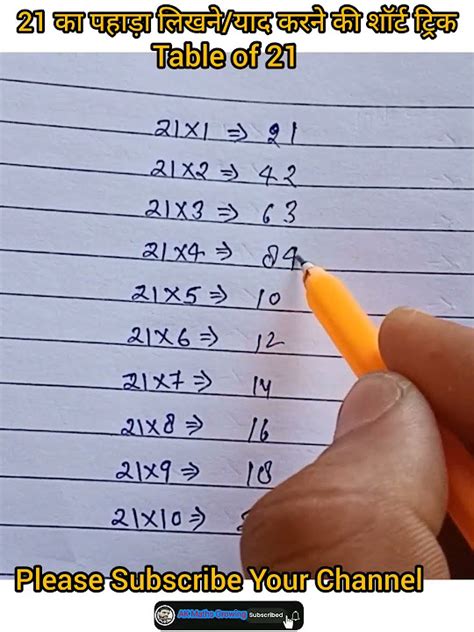 21 का पहाड़ा लिखने/याद करने की शॉर्ट ट्रिक
Table of 21
21×1 ⇒ 21
21×2 ⇒ 42
21×3 ⇒ 63
21×4 ⇒ 84
21×5 ⇒ 10
21×6 ⇒ 12
21×7 ⇒ 14
21×8 ⇒ 16
21×9 ⇒ 18
21×10 ⇒
Please Subscribe Your Channel
AK Maths Growing Subscribed